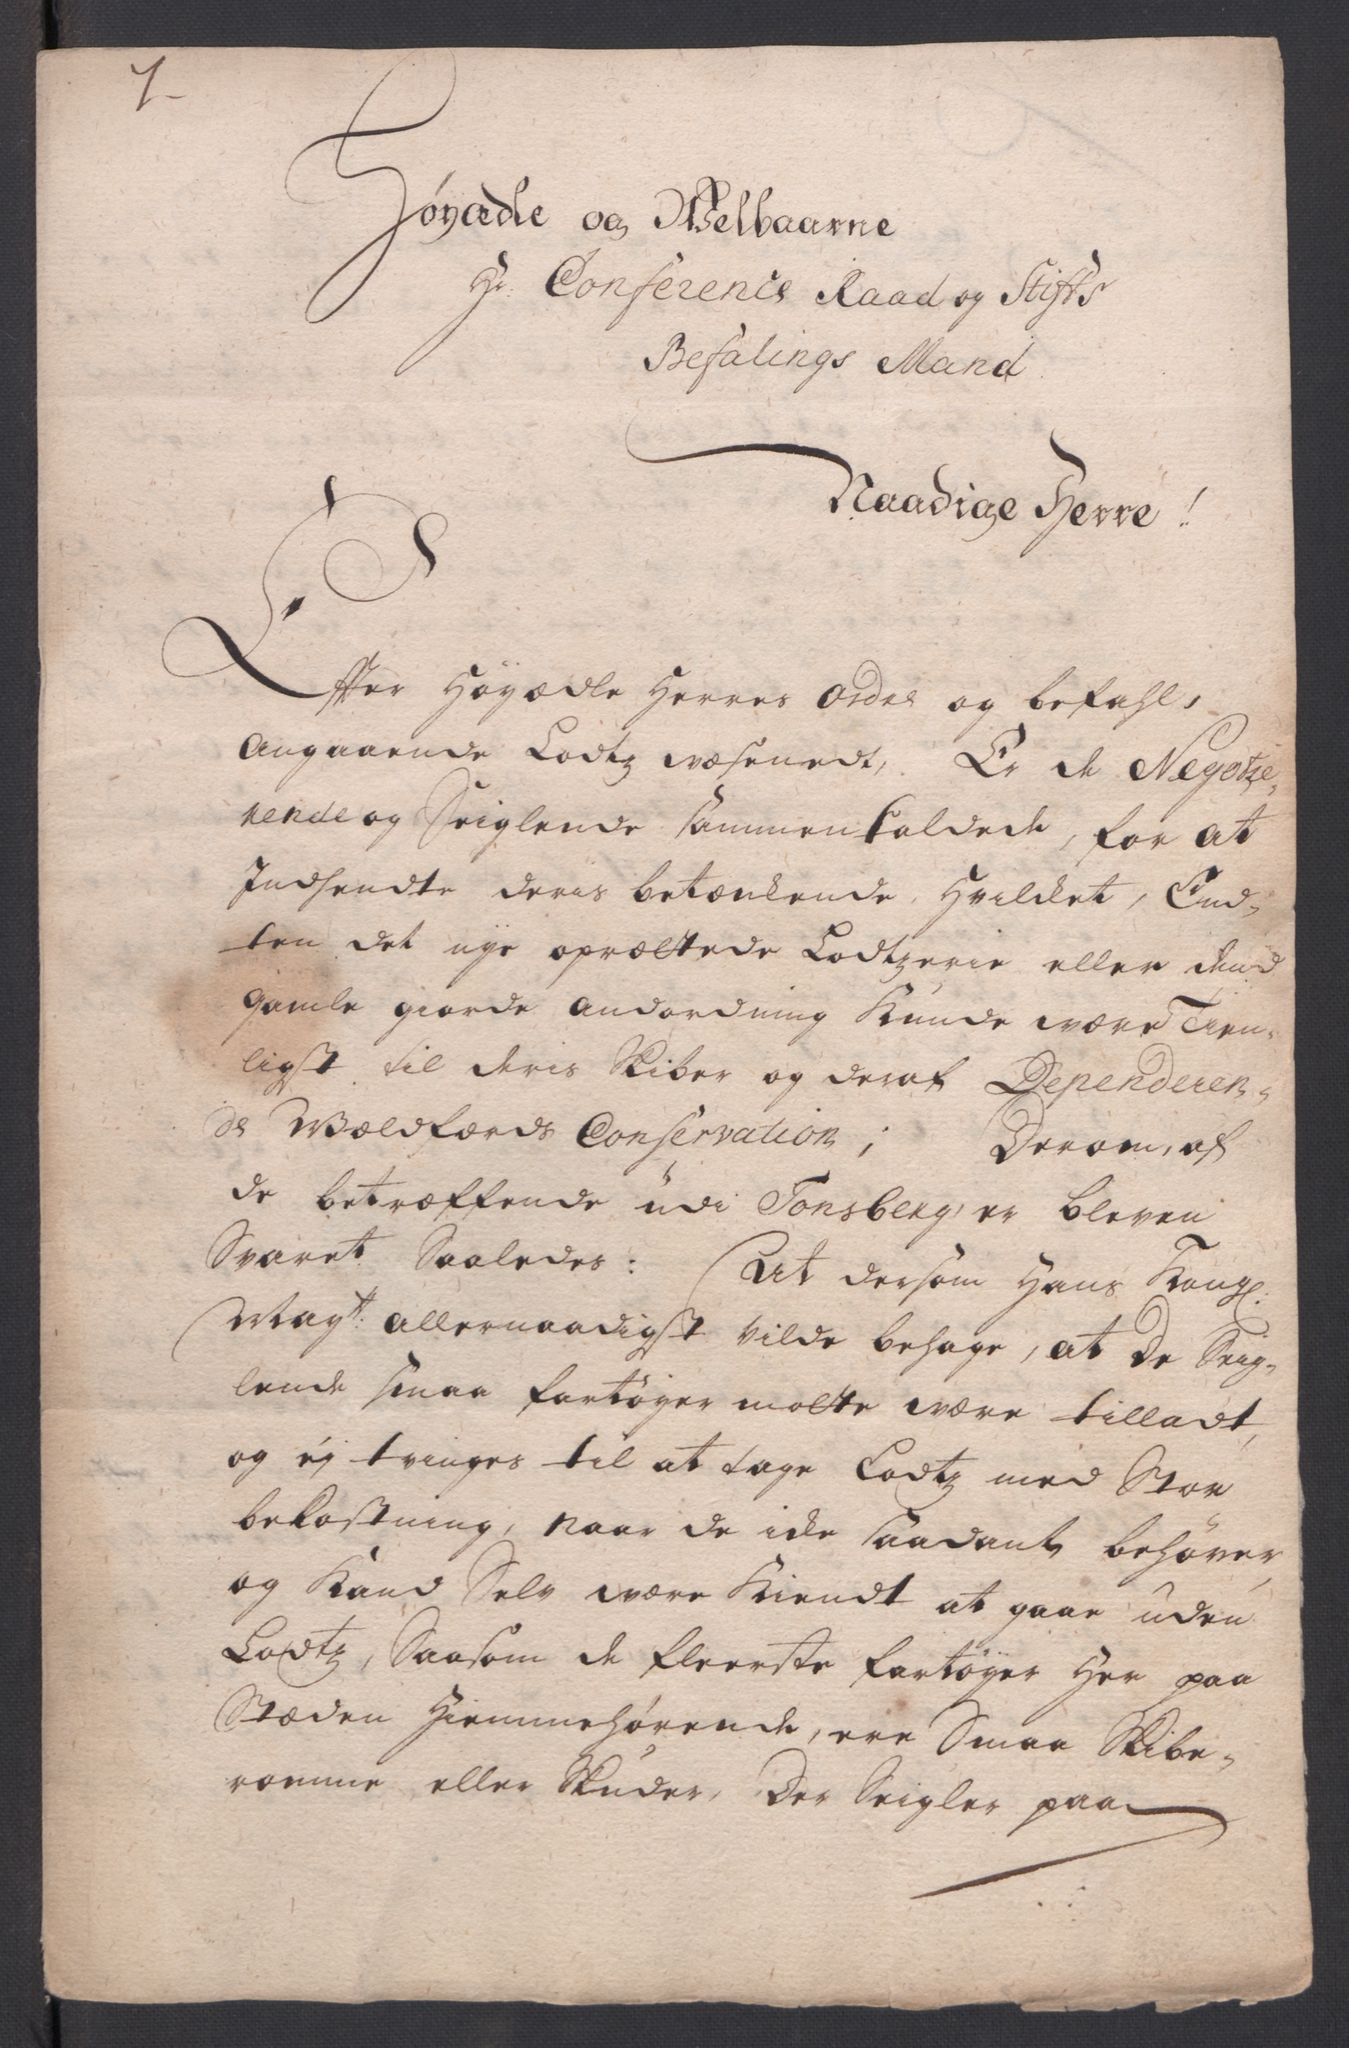 7-
Høyædle og Welbaarne
Hr: Conference Raad og Stifts
Befalings Mand
Naadige Herre!
Effter Høyædle Herres Ordre og befahl,
Angaaende Lodtz wæsenedt, Er de Negotze-
rende og Seiglende sammenkaldede, for at
Indsendte deris betænkende, Hvilcket, End-
ten det nye oprættede Lodtzerie eller dend
gamle giorde andordning Kunde være Tien-
ligst til deris Skiber og deraf Dependeren-
de Wælfærds Conservation; Derom, af
de betræffende udi Tonsberg, er bleven
Svaret Saaledes: At dersom Hans Kongl:
Mayt: allernaadigst Vilde behage, at De Seig-
lende smaa fartøyer motte være tilladt,
og ej tvinges til at tage Lodtz med Stor
bekostning, naar de icke saadant behøver,
og Kand Selv være Kiendt at gaae uden
Lodtz, Saasom de fleerste fartøyer Her paa
Stæden Hiemmehørende, ere Smaa Skibe-
romme eller Skuder, Der Seigler paa